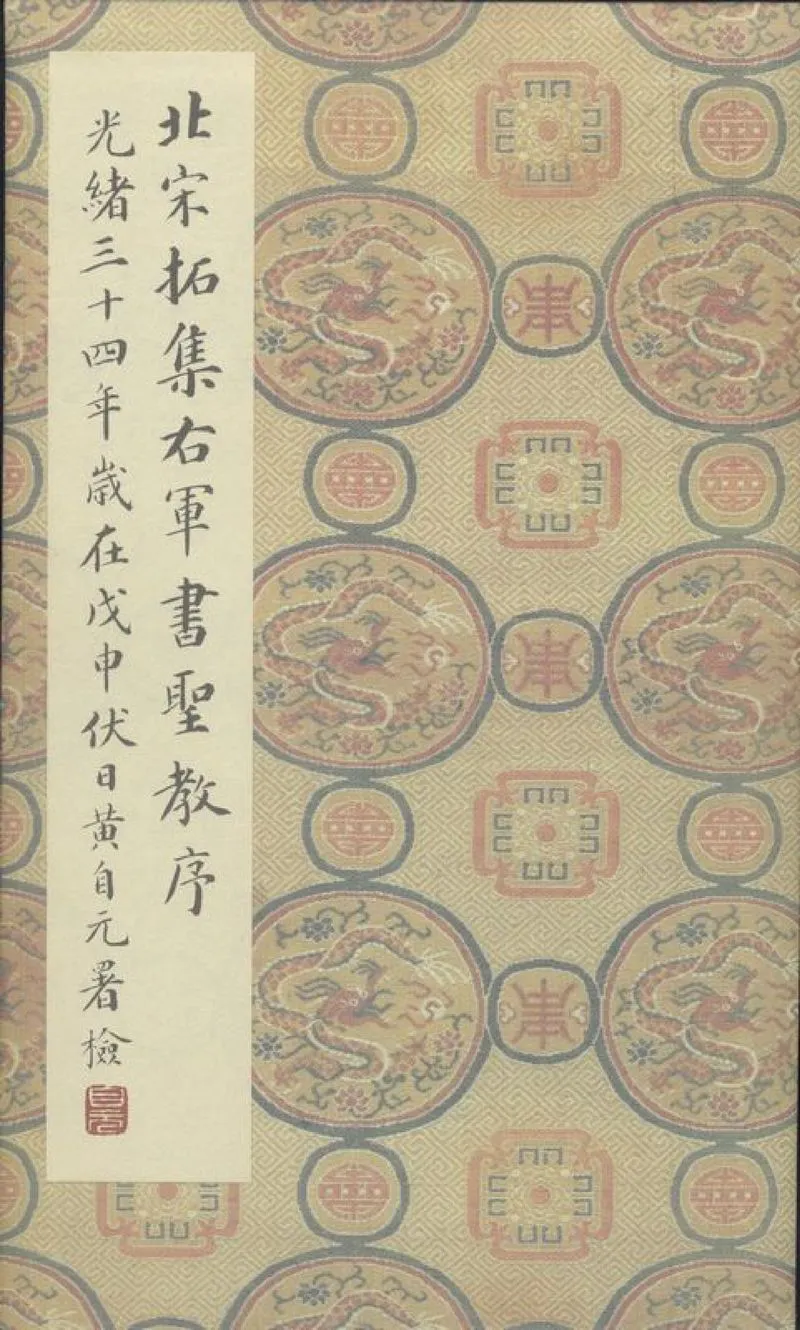 北宋拓集右軍書聖教序
光緒三十四年歲在戊申伏日黃自元署檢
自元